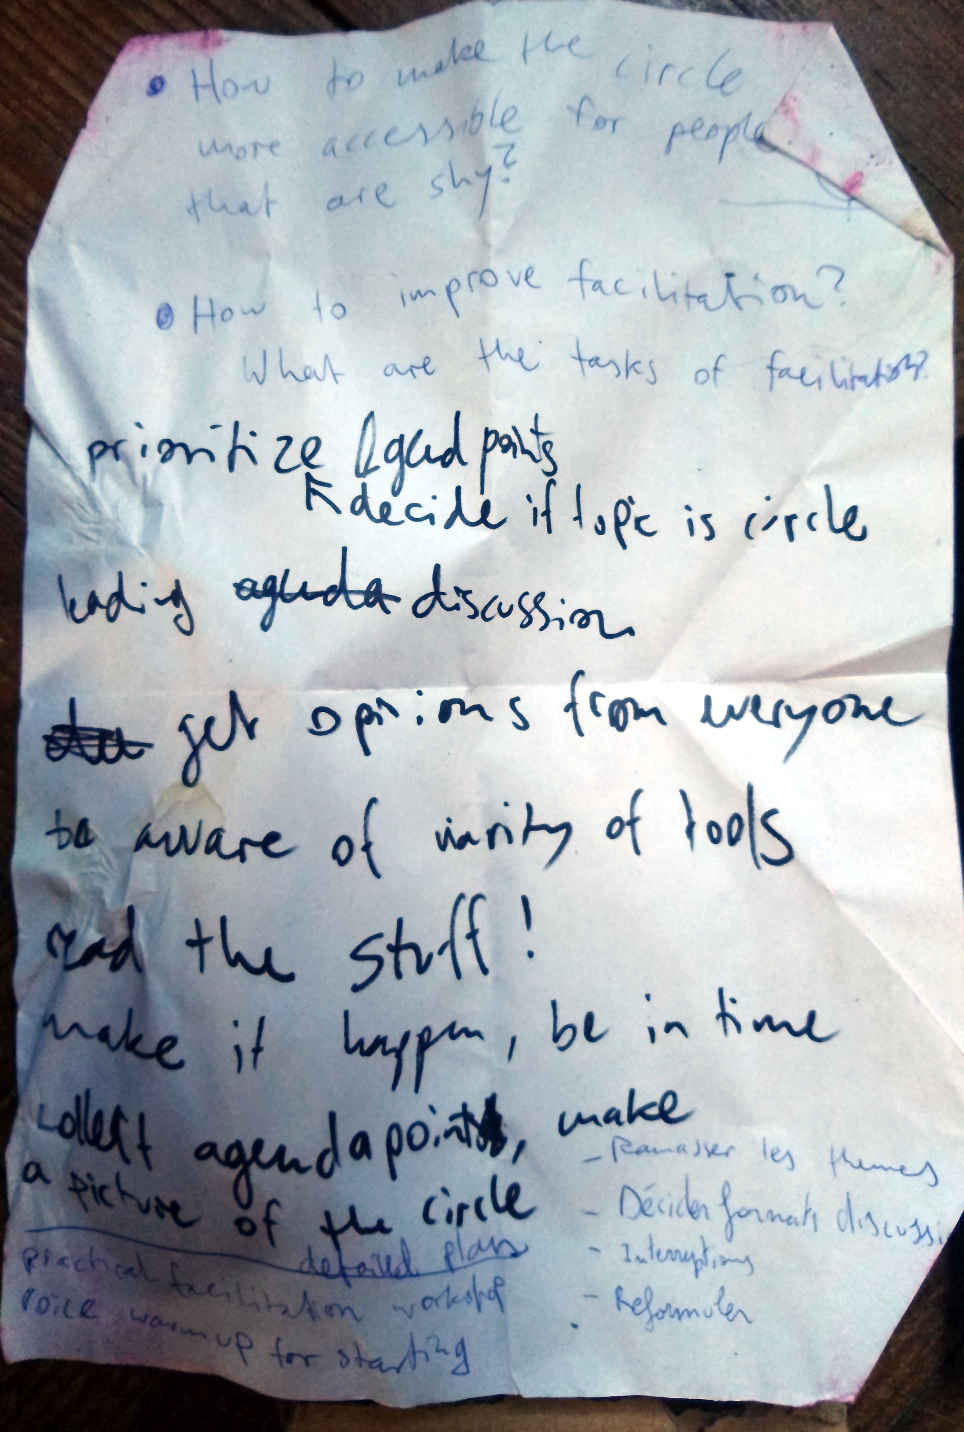 • How to make the circle
more accessible for people
that are shy?
• How to improve facilitation?
What are the tasks of facilitation?
prioritize Agend points
decide if topic is circle
leading agenda discussion
get opinions from everyone
be aware of varity of tools
read the stuff!
make it happen, be in time
collect agendapoints, make
a picture of the circle
detailed plan
practical facilitation workshop
voice warmup for starting
- Ramasser les themes
- Décider formats discussi
- Interruptions
- Reformuler